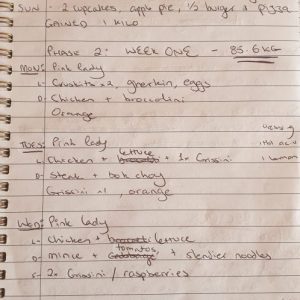 SUN - 2 cupcakes, apple pie, 1/2 burger + pizza
GAINED 1 KILO
PHASE 2: WEEK ONE - 85.6KG
MON: Pink lady
L- Cruskits x2, gherkin, eggs
D- Chicken + broccolini
Orange
TUES: Pink lady
L- Chicken + lettuce + 1x Grissini
D- Steak + bok choy
Grissini x1, orange
1 lemon
WED: Pink lady
L- Chicken + lettuce
D- mince + tomatoes + slendier noodles
S- 2x Grissini / raspberries